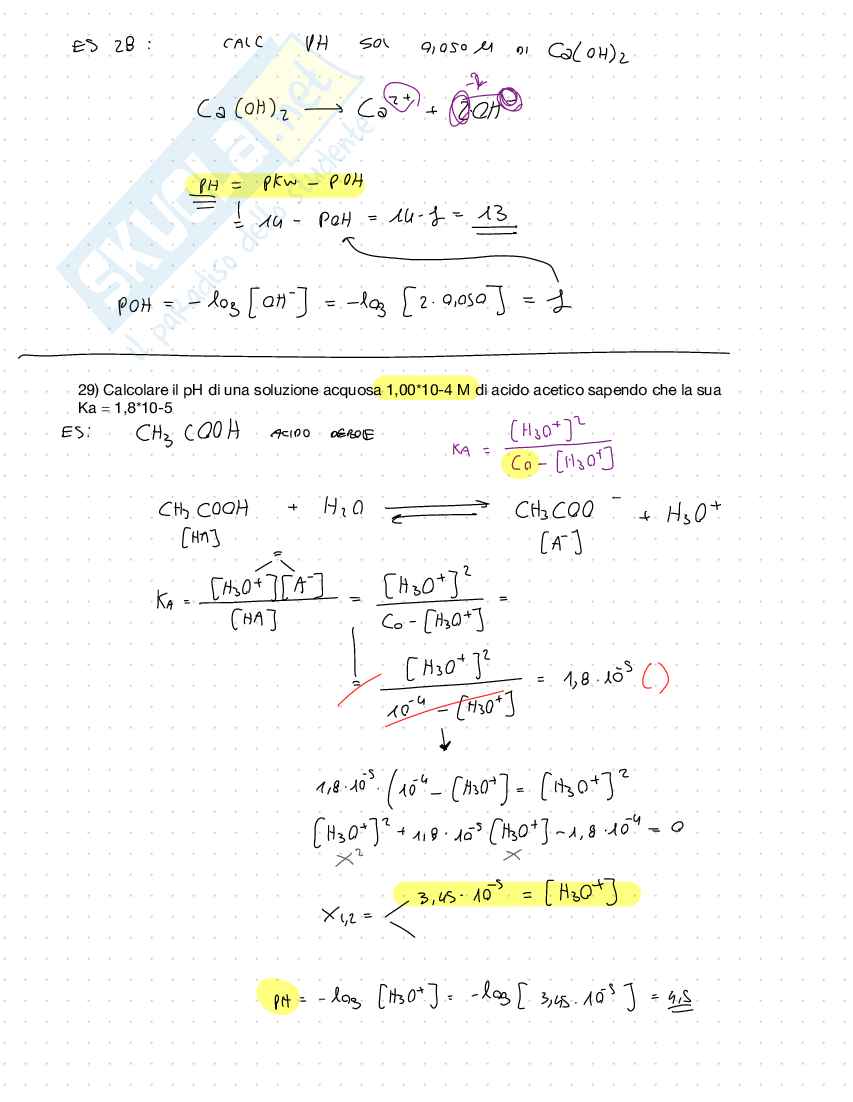 ES 28 : CALC PH SOL 0,050 M DI Ca(OH)2
Ca(OH)2 → Ca2+ + 2OH-
PH = PKW - POH
= 14 - POH = 14 - 1 = 13
POH = -log [OH-] = -log [2·0,050] = 1
SKUOLA.net
il paradiso dello studente
29) Calcolare il pH di una soluzione acquosa 1,00*10-4 M di acido acetico sapendo che la sua
Ka = 1,8*10-5
ES: CH3COOH ACIDO DEBOLE
KA = [H3O+]2 / Co - [H3O+]
CH3COOH + H2O ⇌ CH3COO- + H3O+
[HA] [A-]
=
KA = [H3O+][A-] / [HA] = [H3O+]2 / Co - [H3O+] =
= [H3O+]2 / 10-4 - [H3O+] = 1,8·10-5 ( )
↓
1,8·10-5·(10-4 - [H3O+] = [H3O+]2
[H3O+]2 + 1,8·10-5 [H3O+] - 1,8·10-4 = 0
x2 x
3,45·10-5 = [H3O+]
X1,2 =
PH = -log [H3O+] = -log [3,45·10-5] = 4,5